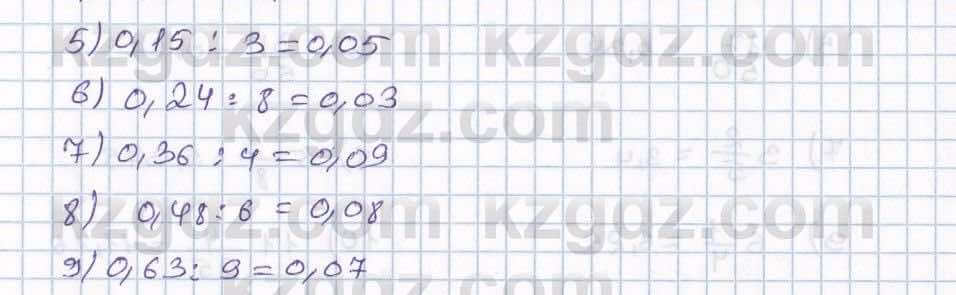 5) 0,15 : 3 = 0,05
6) 0,24 : 8 = 0,03
7) 0,36 : 4 = 0,09
8) 0,48 : 6 = 0,08
9) 0,63 : 9 = 0,07
kzgdz.com kzgdz.com
kzgdz.com
kzgdz.com kzgdz.com